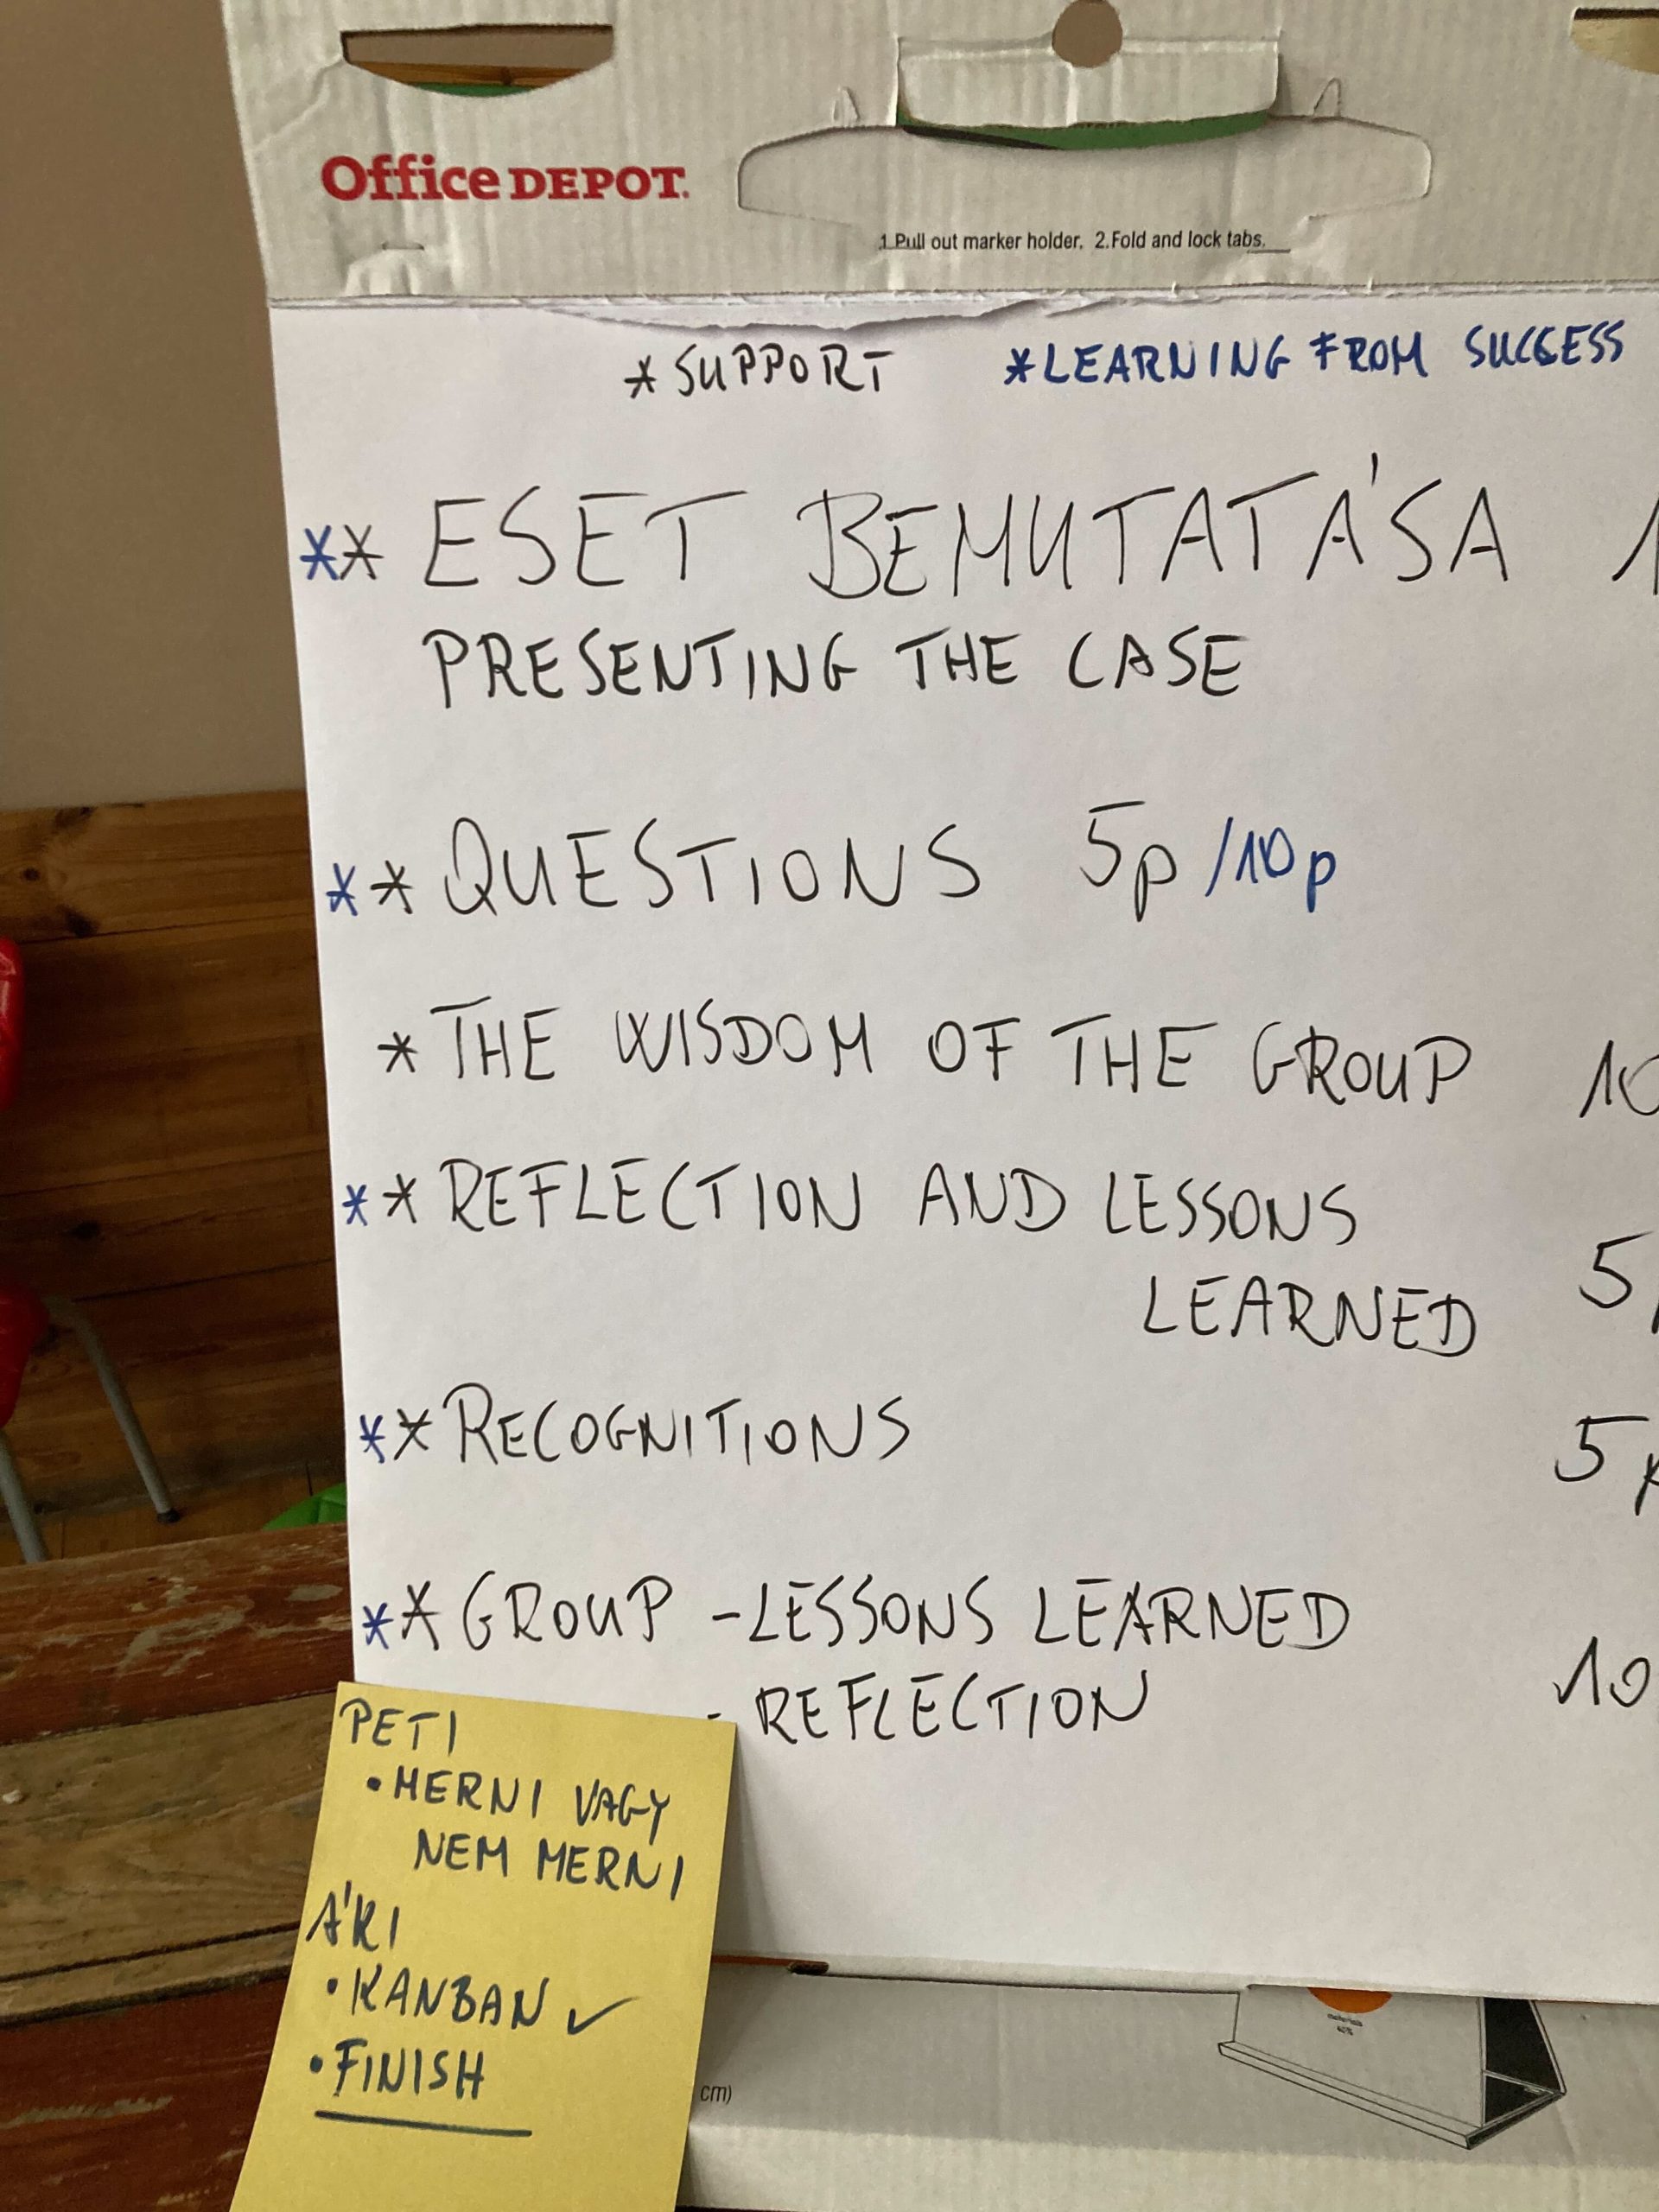 Office DEPOT.
1.Pull out marker holder. 2.Fold and lock tabs.
*SUPPORT *LEARNING FROM SUCCESS
** ESET BEMUTATÁSA 1
PRESENTING THE CASE
** QUESTIONS 5p /10p
* THE WISDOM OF THE GROUP 10
** REFLECTION AND LESSONS
LEARNED 5p
** RECOGNITIONS 5p
** GROUP - LESSONS LEARNED
- REFLECTION 10
PETI
• MERNI VAGY
NEM MERNI
ÁKI
• KANBAN ✓
• FINISH
cm)